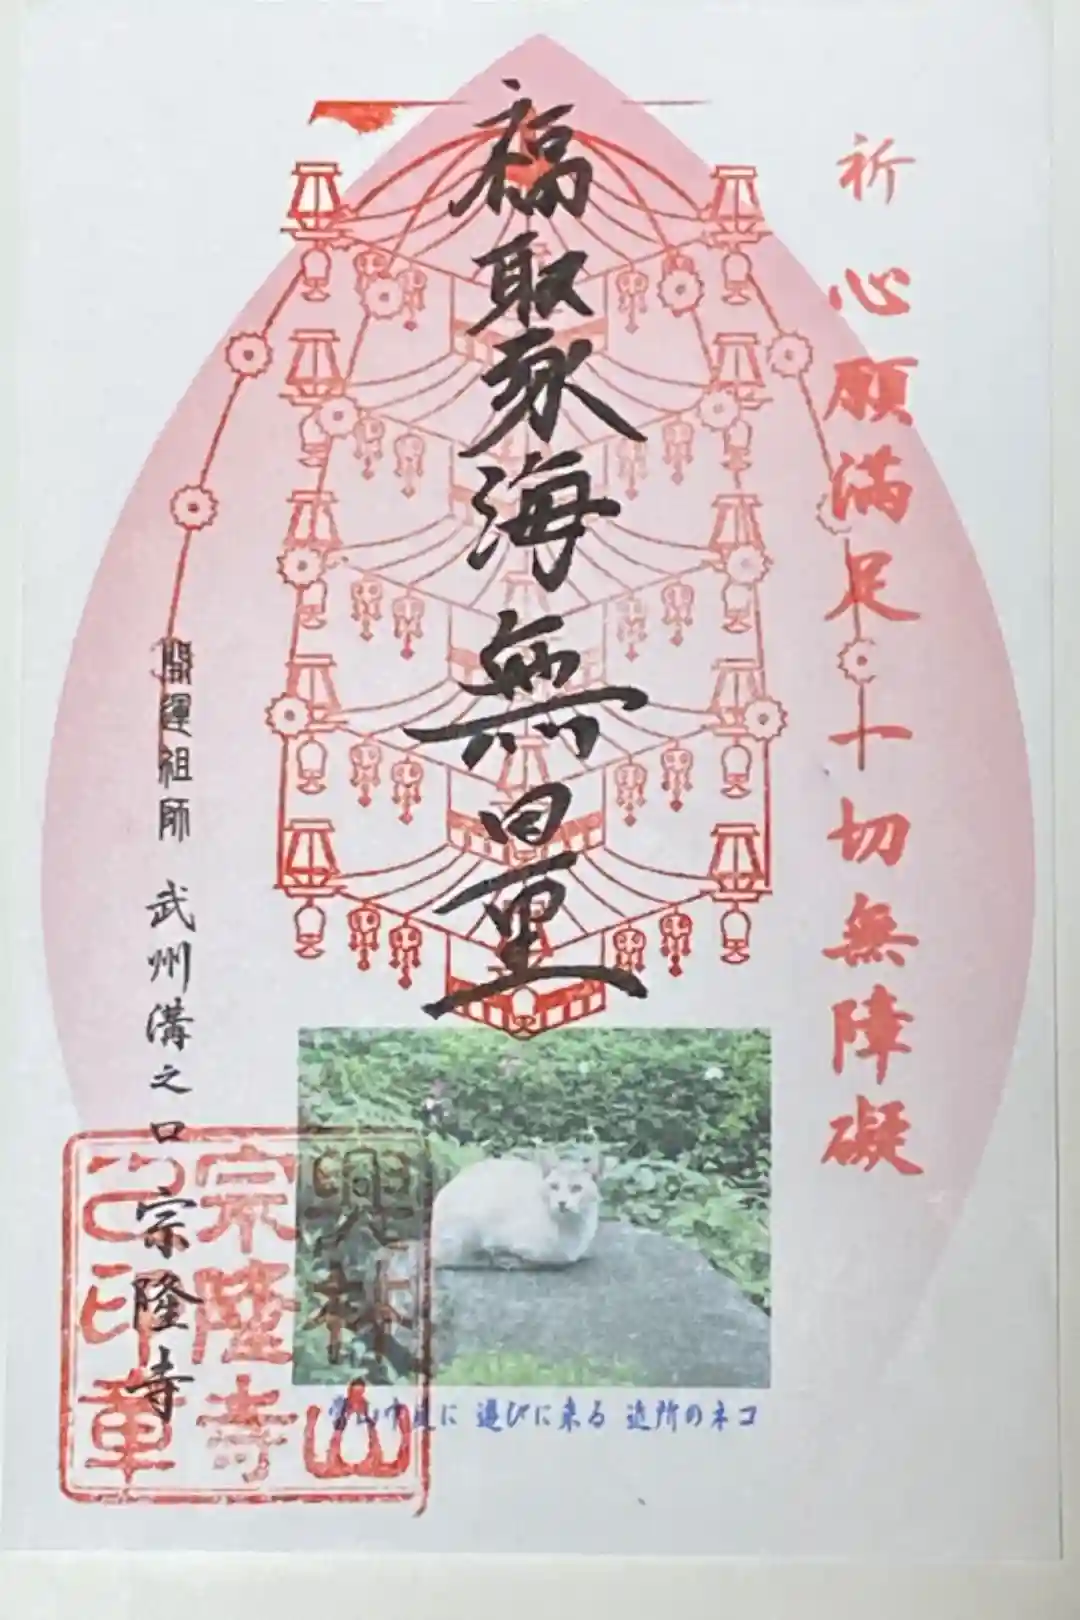 祈心願満足一切無障礙
福聚海無量
開運祖師 武州溝之口 宗隆寺
興林山
宗隆寺
之印章
に 遊びに来る 近所のネコ